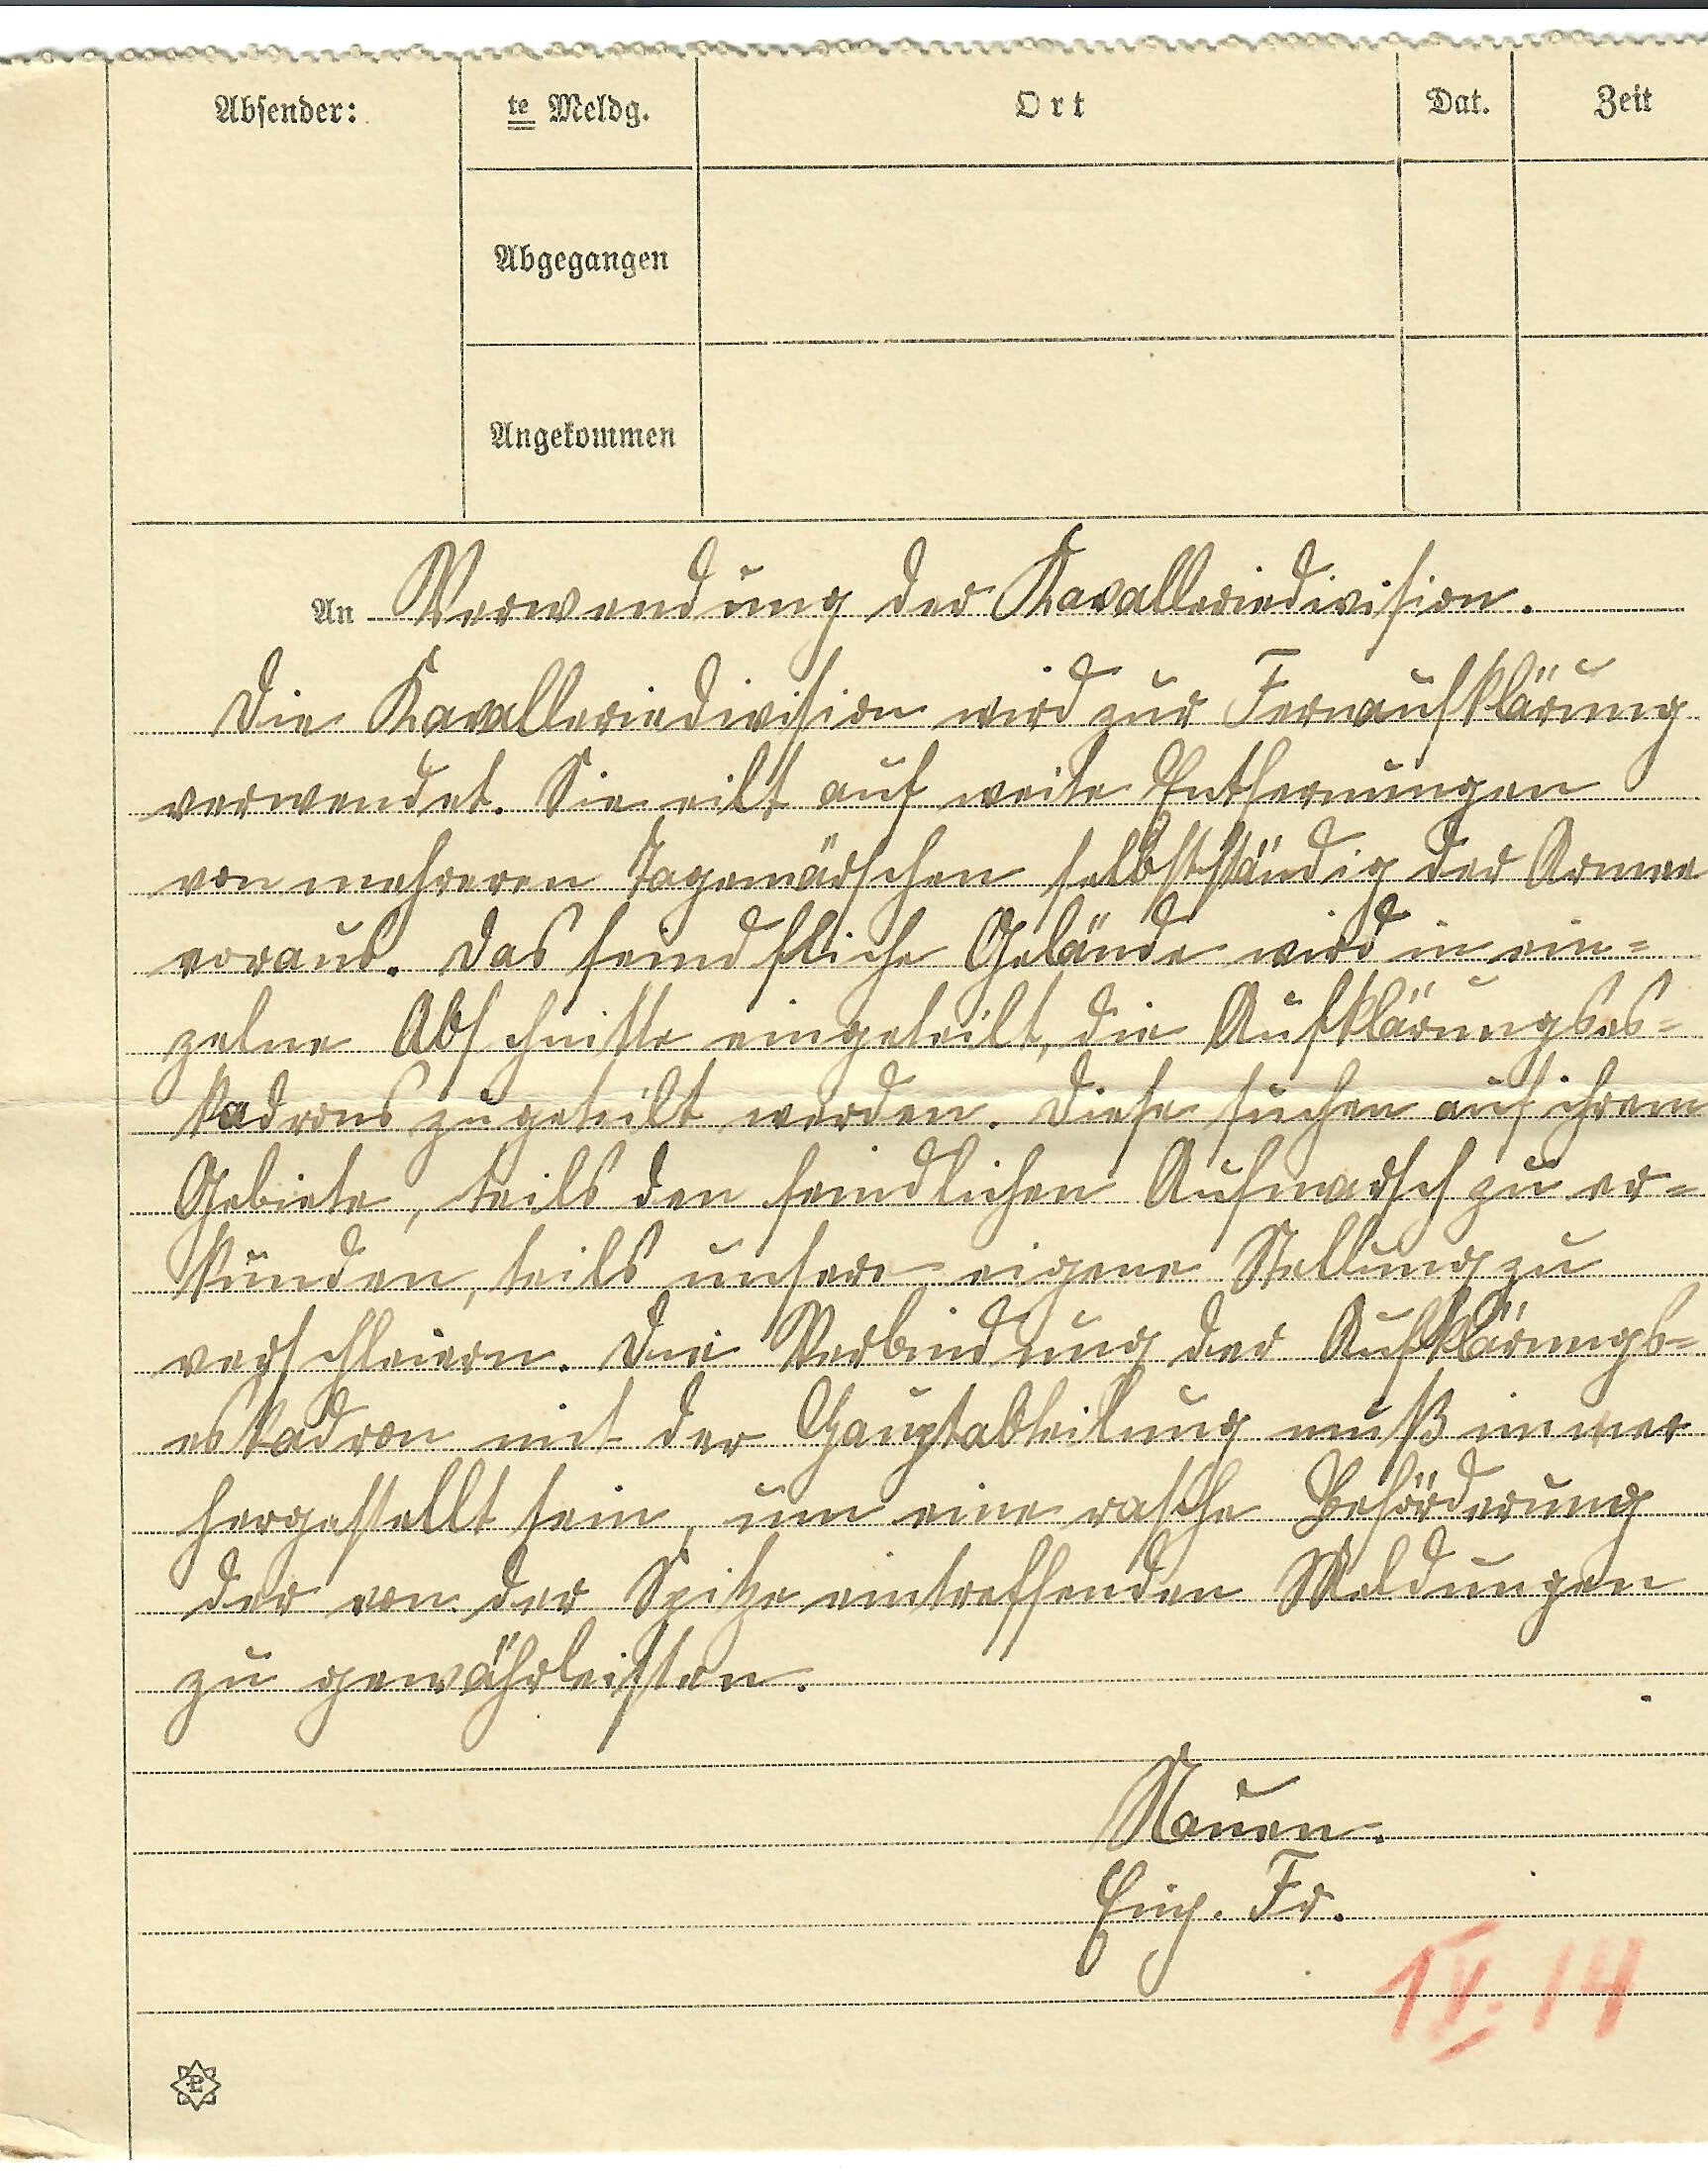 Absender:
te Meldg.
Ort
Dat.
Zeit
Abgegangen
Angekommen
An Verwendung der Kavalleriedivision.
Die Kavalleriedivision wird zur Fernaufklärung
verwendet. Sie eilt auf weite Entfernungen
von mehreren Tagemärschen selbstständig der Armee
voraus. Das feindliche Gelände wird in ein=
zelne Abschnitte eingeteilt, die Aufklärungses=
kadrons zugeteilt werden. Diese suchen auf ihrem
Gebiete, teils den feindlichen Aufmarsch zu er=
künden, teils unsere eigene Stellung zu
verschleiern. Die Verbindung der Aufklärungs=
eskadron mit der Hauptabteilung muß immer
hergestellt sein, um eine rasche Beförderung
der von der Spitze eintreffenden Meldungen
zu gewährleisten.
Nauen.
Einj. Fr.
IV. 14